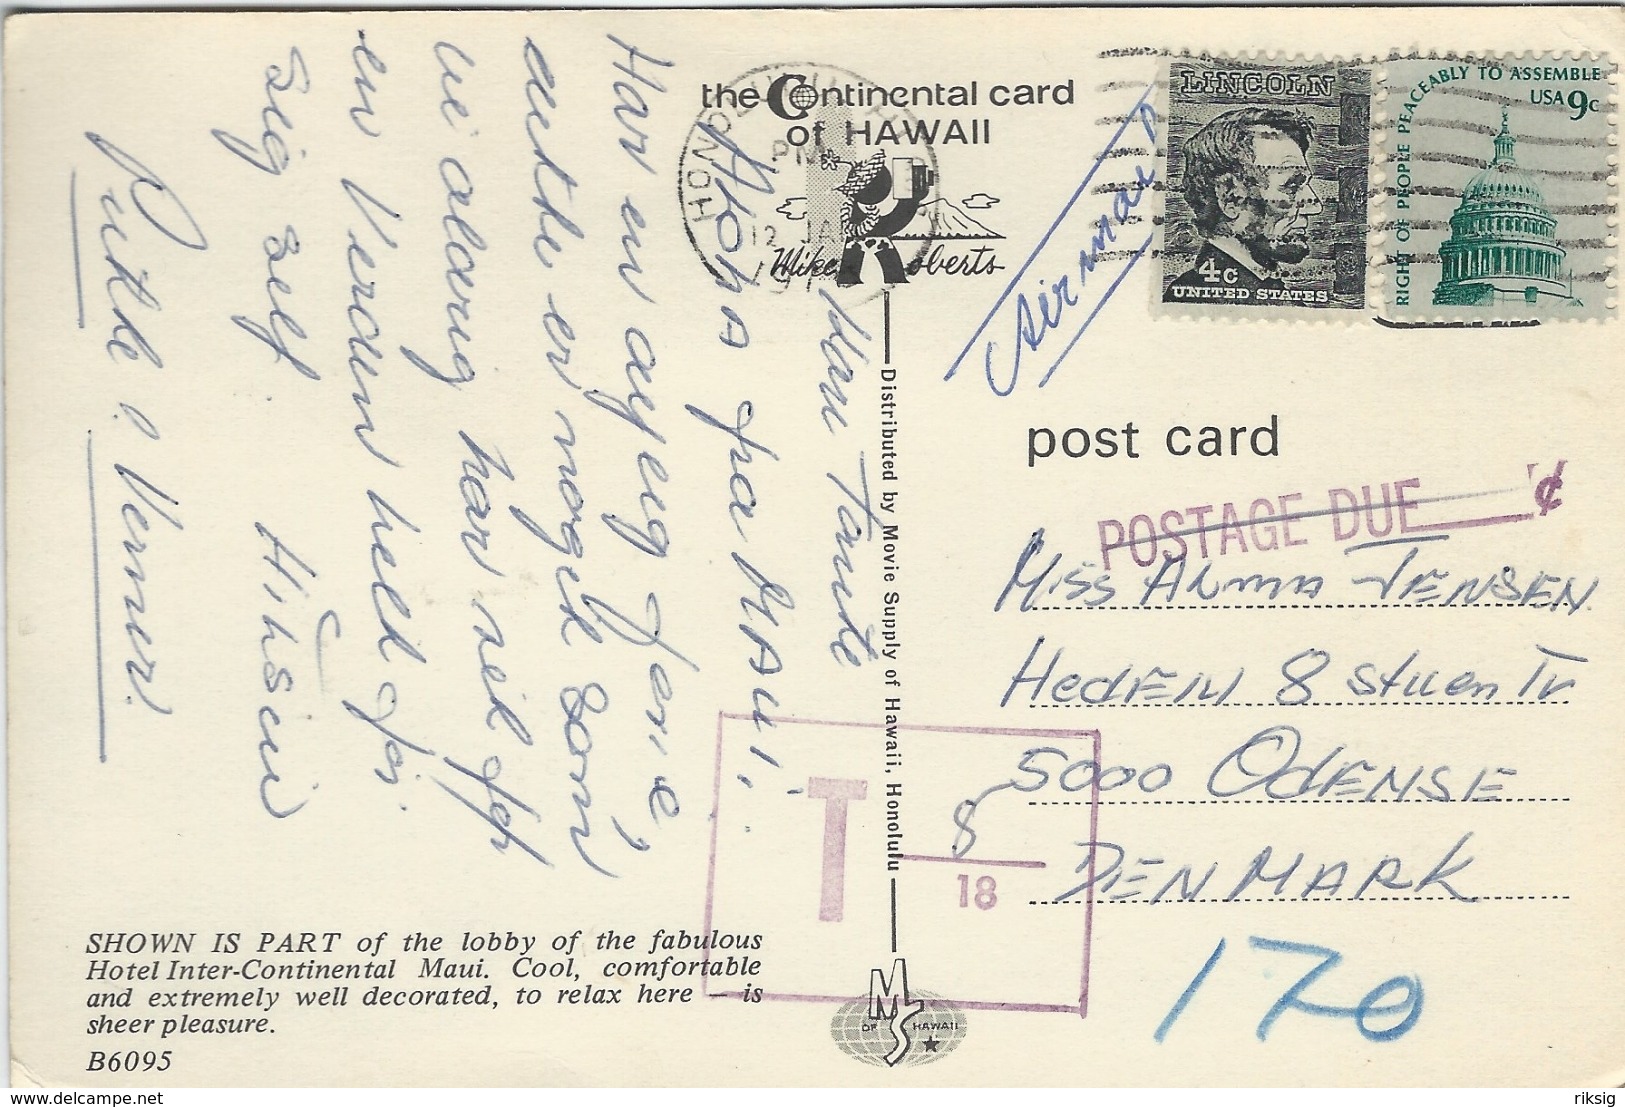 the Continental card
of HAWAII
Mike Roberts
HONOLULU
PM
12 JA
Airmail
LINCOLN
4c
UNITED STATES
RIGHT OF PEOPLE PEACEABLY TO ASSEMBLE
USA 9c
post card
POSTAGE DUE ¢
Miss Alma JENSEN
HEDEN 8 stuen Tv
5000 ODENSE
DENMARK
170
T
8
18
Distributed by Movie Supply of Hawaii, Honolulu
Tante
Aloha fra MAUi,
Har en dejlig ferie,
dette er noget som
vi aldrig har
en Verden held for
sig self.
Hilsen
Ruthe & Verner.
SHOWN IS PART of the lobby of the fabulous
Hotel Inter-Continental Maui. Cool, comfortable
and extremely well decorated, to relax here – is
sheer pleasure.
B6095
MS
OF HAWAII
www.delcampe.net
riksig